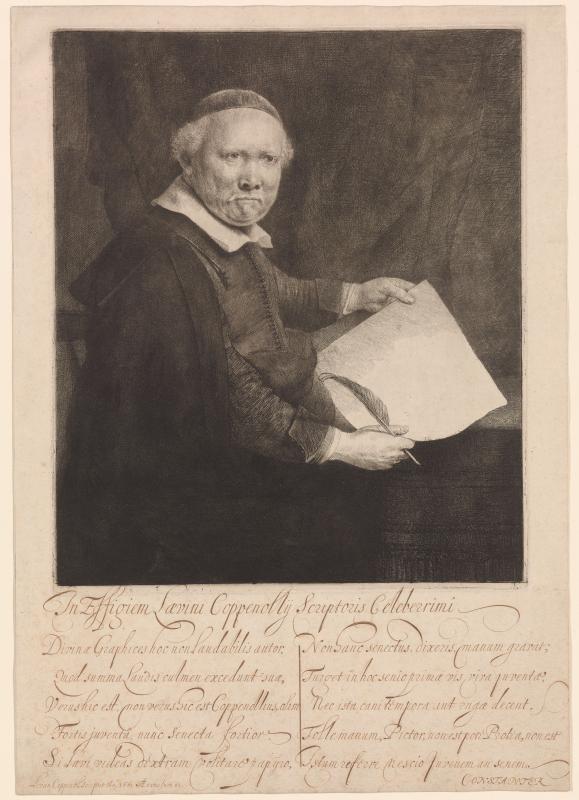 In Effigiem Lævini Coppenolly Scriptoris Celeberrimi
Divinæ Graphices hoc non laudabilis autor,
Quod summa laudis culmen excedunt suæ,
Verus hic est, non verus hic est Coppenollius, olim
Fortis juventâ, nunc senectâ fortior.
Si lævi videas dextram volitare papyro,
Non hanc senectus, dixeris, manum gravat;
Turget in hoc senio primæ vis, viva juventæ,
Nec ista cani tempora aut rugæ decent.
Tolle manum, Pictor, non est pol Probra, non est
Istum referre nescio juvenem an senem.
CONSTANTER